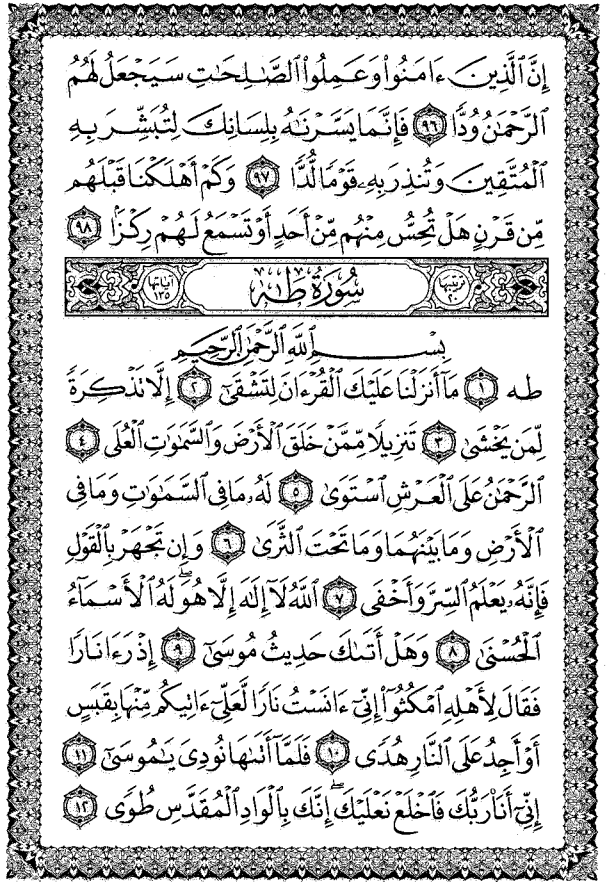 إِنَّ ٱلَّذِينَ ءَامَنُوا۟ وَعَمِلُوا۟ ٱلصَّـٰلِحَـٰتِ سَيَجْعَلُ لَهُمُ
ٱلرَّحْمَـٰنُ وُدًّا ٩٦ فَإِنَّمَا يَسَّرْنَـٰهُ بِلِسَانِكَ لِتُبَشِّرَ بِهِ
ٱلْمُتَّقِينَ وَتُنذِرَ بِهِۦ قَوْمًا لُّدًّا ٩٧ وَكَمْ أَهْلَكْنَا قَبْلَهُم
مِّن قَرْنٍ هَلْ تُحِسُّ مِنْهُم مِّنْ أَحَدٍ أَوْ تَسْمَعُ لَهُمْ رِكْزًۢا ٩٨
ترتيبها ٢٠ سُورَةُ طـٰهٰ آياتها ١٣٥
بِسْمِ ٱللَّهِ ٱلرَّحْمَـٰنِ ٱلرَّحِيمِ
طه ١ مَآ أَنزَلْنَا عَلَيْكَ ٱلْقُرْءَانَ لِتَشْقَىٰٓ ٢ إِلَّا تَذْكِرَةً
لِّمَن يَخْشَىٰ ٣ تَنزِيلًا مِّمَّنْ خَلَقَ ٱلْأَرْضَ وَٱلسَّمَـٰوَٰتِ ٱلْعُلَى ٤
ٱلرَّحْمَـٰنُ عَلَى ٱلْعَرْشِ ٱسْتَوَىٰ ٥ لَهُۥ مَا فِى ٱلسَّمَـٰوَٰتِ وَمَا فِى
ٱلْأَرْضِ وَمَا بَيْنَهُمَا وَمَا تَحْتَ ٱلثَّرَىٰ ٦ وَإِن تَجْهَرْ بِٱلْقَوْلِ
فَإِنَّهُۥ يَعْلَمُ ٱلسِّرَّ وَأَخْفَى ٧ ٱللَّهُ لَآ إِلَـٰهَ إِلَّا هُوَ ۖ لَهُ ٱلْأَسْمَآءُ
ٱلْحُسْنَىٰ ٨ وَهَلْ أَتَىٰكَ حَدِيثُ مُوسَىٰٓ ٩ إِذْ رَءَا نَارًا
فَقَالَ لِأَهْلِهِ ٱمْكُثُوٓا۟ إِنِّىٓ ءَانَسْتُ نَارًا لَّعَلِّىٓ ءَاتِيكُم مِّنْهَا بِقَبَسٍ
أَوْ أَجِدُ عَلَى ٱلنَّارِ هُدًى ١٠ فَلَمَّآ أَتَىٰهَا نُودِىَ يَـٰمُوسَىٰٓ ١١
إِنِّىٓ أَنَا۠ رَبُّكَ فَٱخْلَعْ نَعْلَيْكَ ۖ إِنَّكَ بِٱلْوَادِ ٱلْمُقَدَّسِ طُوًى ١٢